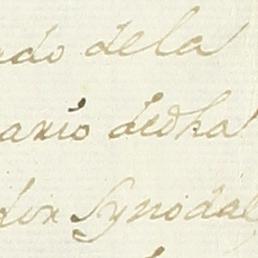 ado dela
ario dedha
dor Synodal